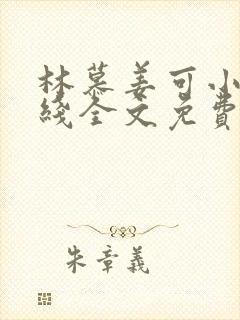 林慕姜可小
綫全文免費
朱章義